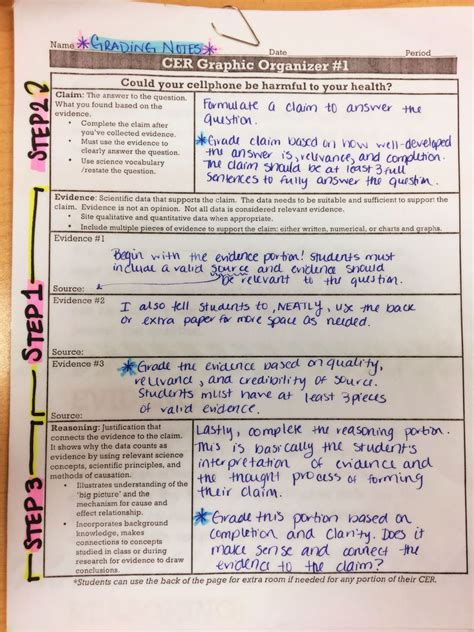 Name *GRADING NOTES* Date Period
CER Graphic Organizer #1
Could your cellphone be harmful to your health?
STEP 2
Claim: The answer to the question.
What you found based on the
evidence.
• Complete the claim after
you've collected evidence.
• Must use the evidence to
clearly answer the question.
• Use science vocabulary
/restate the question.
Formulate a claim to answer the
question.
*Grade claim based on how well-developed
the answer is, relevance, and completion.
The claim should be at least 3 full
sentences to fully answer the question.
STEP 1
Evidence: Scientific data that supports the claim. The data needs to be suitable and sufficient to support the
claim. Evidence is not an opinion. Not all data is considered relevant evidence.
• Site qualitative and quantitative data when appropriate.
• Include multiple pieces of evidence to support the claim: either written, numerical, or charts and graphs.
Evidence #1
Begin with the evidence portion! Students must
include a valid source and evidence should
be relevant to the question.
Source:
Evidence #2
I also tell students to, NEATLY, use the back
or extra paper for more space as needed.
Source:
Evidence #3
*Grade the evidence based on quality,
relevance, and credibility of source.
Students must have at least 3 pieces
of valid evidence.
Source:
STEP 3
Reasoning: Justification that
connects the evidence to the claim.
It shows why the data counts as
evidence by using relevant science
concepts, scientific principles, and
methods of causation.
• Illustrates understanding of the
'big picture' and the
mechanism for cause and
effect relationship.
• Incorporates background
knowledge, makes
connections to concepts
studied in class or during
research for evidence to draw
conclusions.
Lastly, complete the reasoning portion.
This is basically the student's
interpretation of evidence and
the thought process of forming
their claim.
*Grade this portion based on
completion and clarity. Does it
make sense and connect the
evidence to the claim?
*Students can use the back of the page for extra room if needed for any portion of their CER.